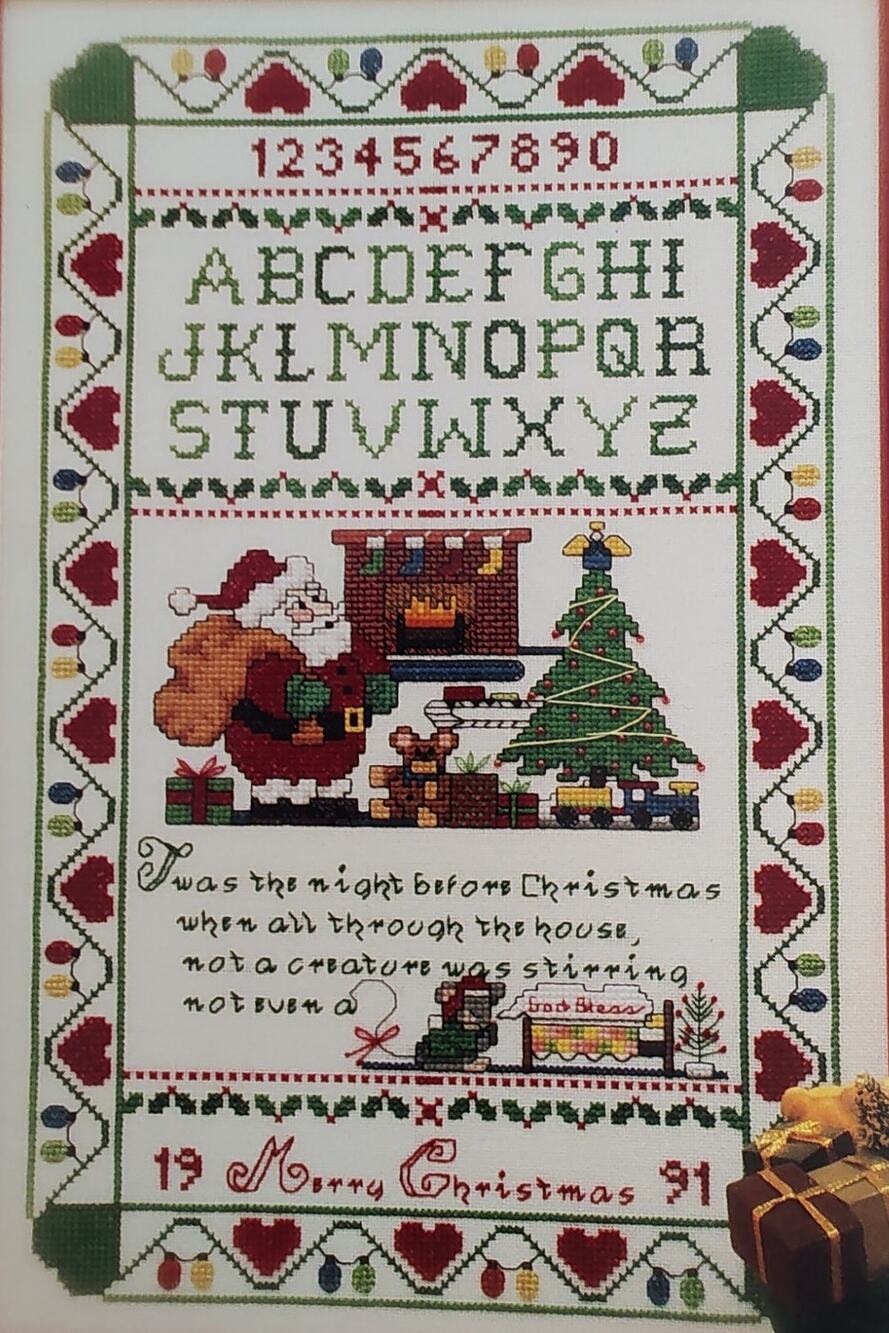 1234567890
ABCDEFGHI
JKLMNOPQR
STUVWXYZ
Twas the night before Christmas
when all through the house,
not a creature was stirring
not even a
God Bless
19 Merry Christmas 91